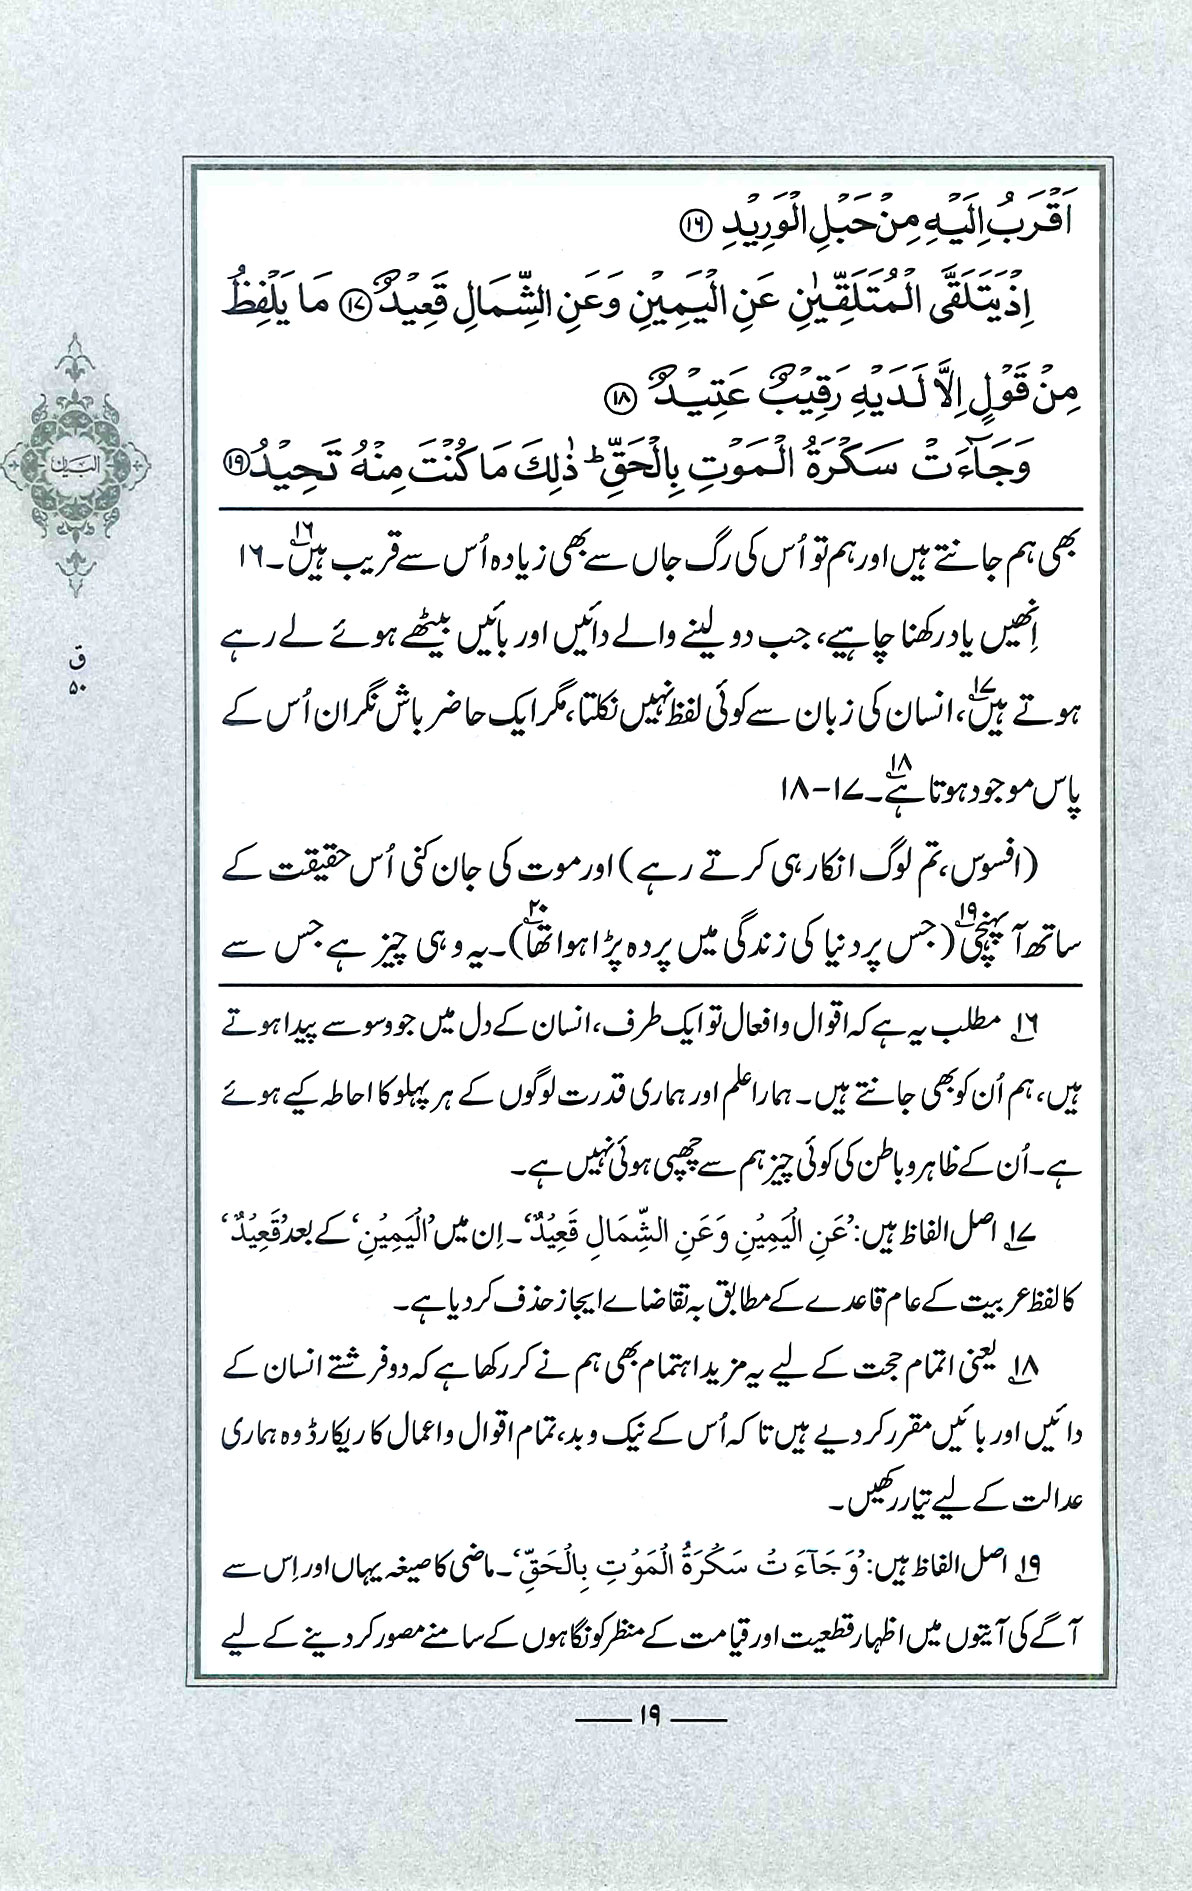 اَقْرَبُ اِلَيْهِ مِنْ حَبْلِ الْوَرِيْدِ ﴿۱۶﴾
اِذْ يَتَلَقَّى الْمُتَلَقِّيٰنِ عَنِ الْيَمِيْنِ وَعَنِ الشِّمَالِ قَعِيْدٌ ﴿۱۷﴾ مَا يَلْفِظُ
مِنْ قَوْلٍ اِلَّا لَدَيْهِ رَقِيْبٌ عَتِيْدٌ ﴿۱۸﴾
وَجَآءَتْ سَكْرَةُ الْمَوْتِ بِالْحَقِّ ؕ ذٰلِكَ مَا كُنْتَ مِنْهُ تَحِيْدُ ﴿۱۹﴾
بھی ہم جانتے ہیں اور ہم تو اُس کی رگ جاں سے بھی زیادہ اُس سے قریب ہیں۱۶۔ ۱۶
اِنھیں یاد رکھنا چاہیے، جب دو لینے والے دائیں اور بائیں بیٹھے ہوئے لے رہے
ہوتے ہیں۱۷، انسان کی زبان سے کوئی لفظ نہیں نکلتا، مگر ایک حاضر باش نگران اُس کے
پاس موجود ہوتا ہے۱۸۔ ۱۷-۱۸
(افسوس، تم لوگ انکار ہی کرتے رہے) اور موت کی جان کنی اُس حقیقت کے
ساتھ آ پہنچی۱۹ (جس پر دنیا کی زندگی میں پردہ پڑا ہوا تھا۲۰)۔ یہ وہی چیز ہے جس سے
۱۶؎ مطلب یہ ہے کہ اقوال و افعال تو ایک طرف، انسان کے دل میں جو وسوسے پیدا ہوتے
ہیں، ہم اُن کو بھی جانتے ہیں۔ ہمارا علم اور ہماری قدرت لوگوں کے ہر پہلو کا احاطہ کیے ہوئے
ہے۔ اُن کے ظاہر و باطن کی کوئی چیز ہم سے چھپی ہوئی نہیں ہے۔
۱۷؎ اصل الفاظ ہیں: ’عَنِ الْيَمِيْنِ وَعَنِ الشِّمَالِ قَعِيْدٌ‘۔ اِن میں ’الْيَمِيْنِ‘ کے بعد ’قَعِيْدٌ‘
کا لفظ عربیت کے عام قاعدے کے مطابق بہ تقاضاے ایجاز حذف کر دیا ہے۔
۱۸؎ یعنی اتمام حجت کے لیے یہ مزید اہتمام بھی ہم نے کر رکھا ہے کہ دو فرشتے انسان کے
دائیں اور بائیں مقرر کر دیے ہیں تاکہ اُس کے نیک و بد، تمام اقوال و اعمال کا ریکارڈ وہ ہماری
عدالت کے لیے تیار رکھیں۔
۱۹؎ اصل الفاظ ہیں: ’وَجَآءَتْ سَكْرَةُ الْمَوْتِ بِالْحَقِّ‘۔ ماضی کا صیغہ یہاں اور اِس سے
آگے کی آیتوں میں اظہار قطعیت اور قیامت کے منظر کو نگاہوں کے سامنے مصور کر دینے کے لیے
۱۹
البیان
ق
۵۰